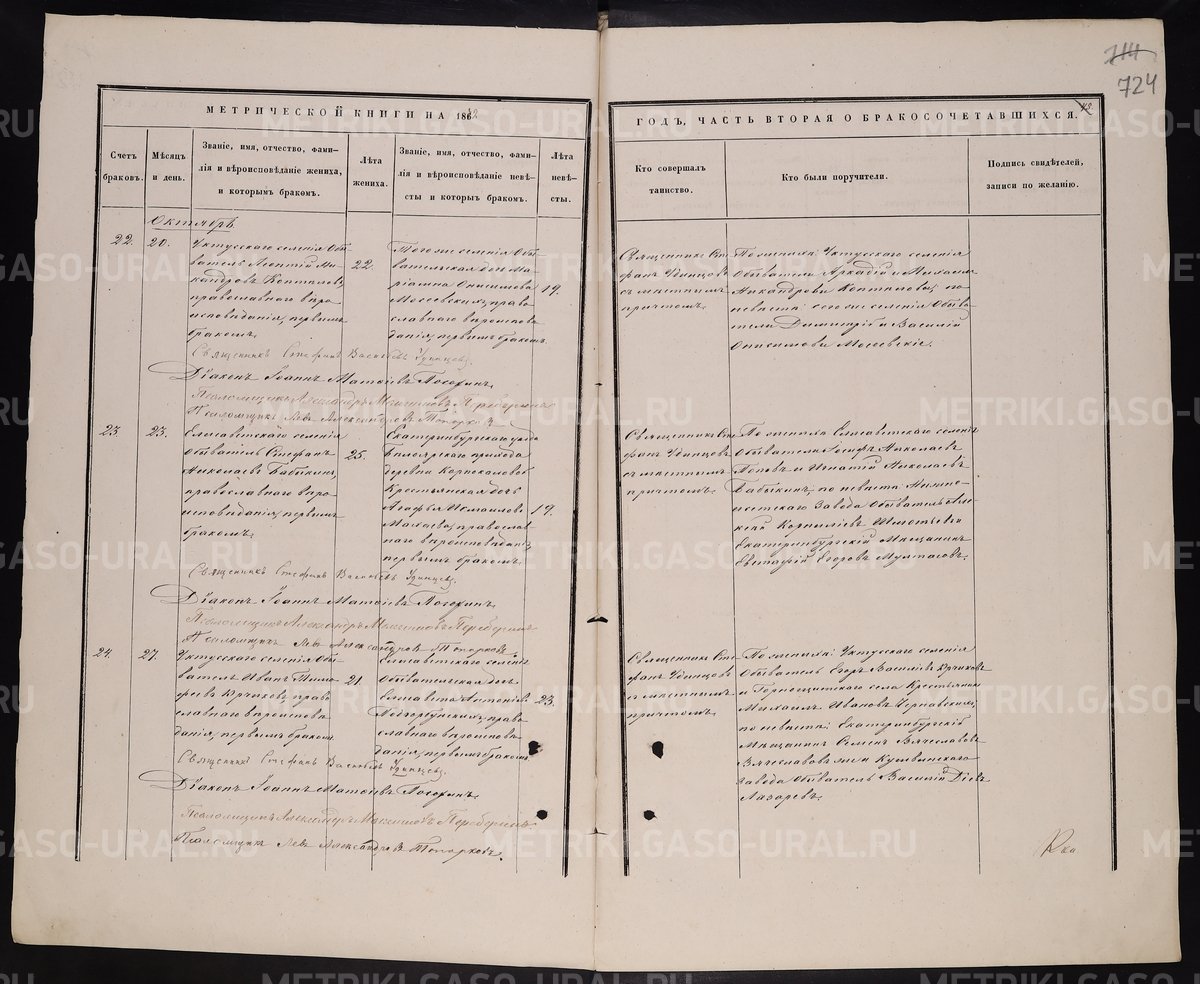 724
МЕТРИЧЕСКОЙ КНИГИ НА 1862
ГОДЪ, ЧАСТЬ ВТОРАЯ О БРАКОСОЧЕТАВШИХСЯ.
Счетъ
браковъ.
Мѣсяцъ
и день.
Званіе, имя, отчество, фами-
лія и вѣроисповѣданіе жениха,
и которымъ бракомъ.
Лѣта
жениха.
Званіе, имя, отчество, фами-
лія и вѣроисповѣданіе невѣ-
сты и которымъ бракомъ.
Лѣта
невѣ-
сты.
Кто совершалъ
таинство.
Кто были поручители.
Подпись свидѣтелей,
записи по желанію.
Октябрь
22.
20.
Уктусскаго селенія Обы-
ватель Леонтій Ни-
кандровъ Коптяловъ,
православнаго вѣро-
исповѣданія, первымъ
бракомъ.
22.
Того же селенія Обы-
вательская дочь Ма-
ріамна Онисимова
Мосеевскихъ, право-
славнаго вѣроисповѣ-
данія, первымъ бракомъ.
19.
Священникъ Сте-
фанъ Удинцовъ
съ мѣстнымъ
причтомъ.
По женихѣ: Уктусскаго селенія
Обыватели Аркадій и Михаилъ
Никандровы Коптяловы; по
невѣстѣ: того же селенія Обыва-
тели Димитрій и Василій
Онисимовы Мосеевскіе.
Священникъ Стефанъ Васильевъ Удинцевъ.
Діаконъ Іоаннъ Матѳіевъ Погоринъ.
Псаломщикъ Александръ
Псаломщикъ Левъ Александровъ Топорковъ
23.
23.
Елисаветскаго селенія
Обыватель Стефанъ
Николаевъ Бабыкинъ,
православнаго вѣро-
исповѣданія, первымъ
бракомъ.
25.
Екатеринбургскаго уѣзда
Бѣлоярскаго прихода
деревни
Крестьянская дочь
Агафья
православ-
наго вѣроисповѣданія,
первымъ бракомъ.
19.
Священникъ Сте-
фанъ Удинцовъ
съ мѣстнымъ
причтомъ.
По женихѣ: Елисаветскаго селенія
Обыватели Іосифъ Николаевъ
Поповъ и Игнатій Николаевъ
Бабыкинъ; по невѣстѣ: Нижне-
исетскаго Завода Обыватель
Корниліевъ
Екатеринбургскій Мѣщанинъ
Егоровъ
Священникъ Стефанъ Васильевъ Удинцевъ.
Діаконъ Іоаннъ Матѳіевъ Погоринъ.
Псаломщикъ Александръ
Псаломщикъ Левъ Александровъ Топорковъ.
24.
27.
Уктусскаго селенія Обы-
ватель Иванъ Тимо-
феевъ право-
славнаго вѣроисповѣ-
данія, первымъ бракомъ
21.
Елисаветскаго селенія
Обывательская дочь
Елисавета Антоніева
право-
славнаго вѣроисповѣ-
данія, первымъ бракомъ
23.
Священникъ Сте-
фанъ Удинцовъ
съ мѣстнымъ
причтомъ.
По женихѣ: Уктусскаго селенія
Обыватель Егоръ Васильевъ
и Горнощитскаго села Крестьянинъ
Михаилъ Ивановъ Чернавскихъ,
по невѣстѣ: Екатеринбургскій
Мѣщанинъ Семенъ Вячеславовъ
Вячеславовъ же и
завода Обыватель Василій
Лазаревъ.
Священникъ Стефанъ Васильевъ Удинцевъ.
Діаконъ Іоаннъ Матѳіевъ Погоринъ.
Псаломщикъ Александръ
Псаломщикъ Левъ Александровъ Топорковъ.
METRIKI.GASO-URAL.RU